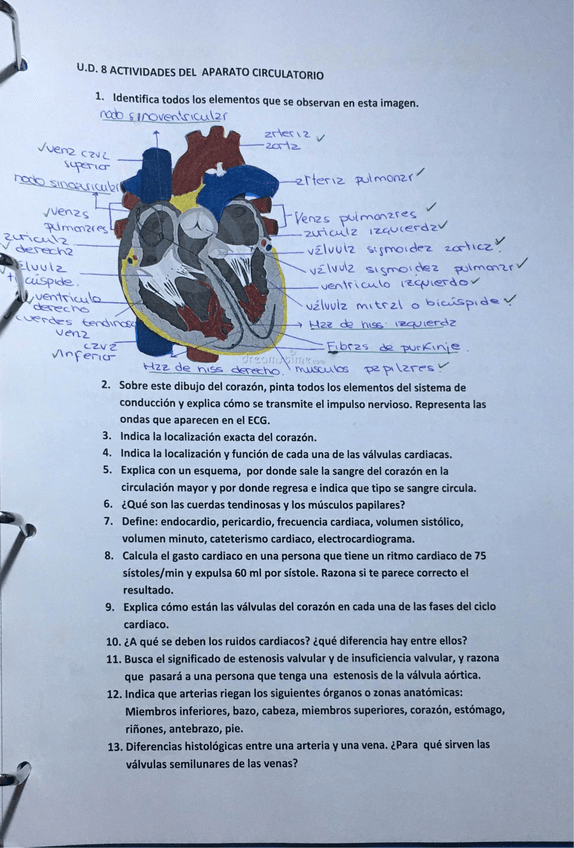 U.D. 8 ACTIVIDADES DEL APARATO CIRCULATORIO
1. Identifica todos los elementos que se observan en esta imagen.
nodo sinoventricular
arteria
aorta
vena cava
superior
nodo sinoauricular
arteria pulmonar
venas
pulmonares
venas pulmonares
auricula izquierda
auricula
derecha
válvula sigmoidea aortica
válvula
tricúspide
válvula sigmoidea pulmonar
ventriculo izquierdo
ventriculo
derecho
válvula mitral o bicúspide
cuerdes tendinosa
Haz de hiss izquierda
vena
cava
inferior
Fibras de purkinje
dreamstime
Haz de hiss derecho.
musculos papilares
2. Sobre este dibujo del corazón, pinta todos los elementos del sistema de
conducción y explica cómo se transmite el impulso nervioso. Representa las
ondas que aparecen en el ECG.
3. Indica la localización exacta del corazón.
4. Indica la localización y función de cada una de las válvulas cardiacas.
5. Explica con un esquema, por donde sale la sangre del corazón en la
circulación mayor y por donde regresa e indica que tipo se sangre circula.
6. ¿Qué son las cuerdas tendinosas y los músculos papilares?
7. Define: endocardio, pericardio, frecuencia cardiaca, volumen sistólico,
volumen minuto, cateterismo cardiaco, electrocardiograma.
8. Calcula el gasto cardiaco en una persona que tiene un ritmo cardiaco de 75
sístoles/min y expulsa 60 ml por sístole. Razona si te parece correcto el
resultado.
9. Explica cómo están las válvulas del corazón en cada una de las fases del ciclo
cardiaco.
10. ¿A qué se deben los ruidos cardiacos? ¿qué diferencia hay entre ellos?
11. Busca el significado de estenosis valvular y de insuficiencia valvular, y razona
que pasará a una persona que tenga una estenosis de la válvula aórtica.
12. Indica que arterias riegan los siguientes órganos o zonas anatómicas:
Miembros inferiores, bazo, cabeza, miembros superiores, corazón, estómago,
riñones, antebrazo, pie.
13. Diferencias histológicas entre una arteria y una vena. ¿Para qué sirven las
válvulas semilunares de las venas?